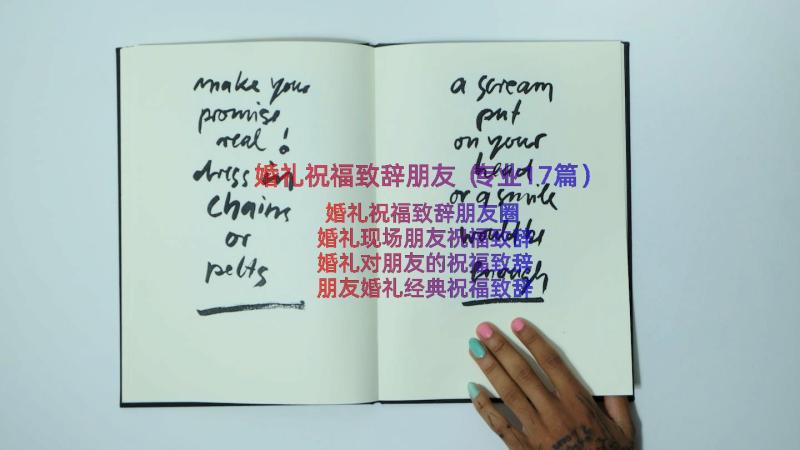 make your
promise
real!
dress in
chains
or
pelts
a scream
put
on your
head
or a smile
would be
enough
婚礼祝福致辞朋友（专业17篇）
婚礼祝福致辞朋友圈
婚礼现场朋友祝福致辞
婚礼对朋友的祝福致辞
朋友婚礼经典祝福致辞